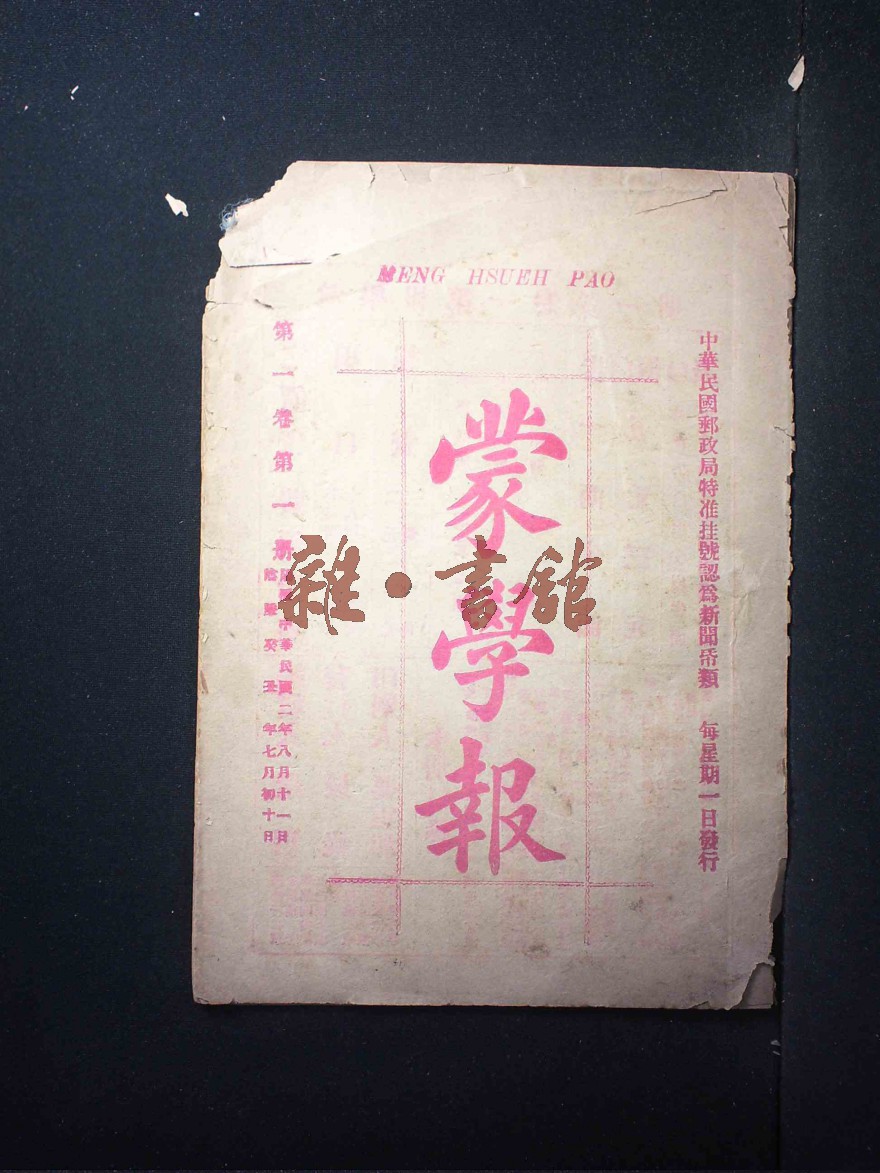 MENG HSUEH PAO
中華民國郵政局特准挂號認爲新聞帋類 每星期一日發行
蒙學報
第一卷第一册
中華民國二年八月十一日
陰歷癸丑年七月初十日
雜·書館